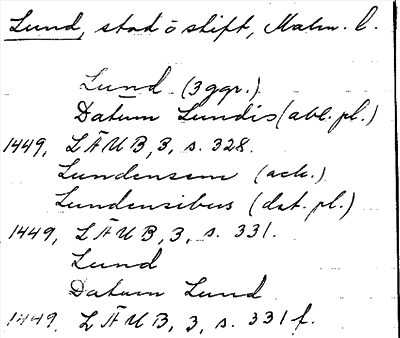 Lund, stad o stift, Malm. l.
Lund (3 ggr.)
Datum Lundis (abl. pl.)
1449, LÄUB, 3, s. 328.
Lundensem (ack.)
Lundensibus (dat. pl.)
1449, LÄUB, 3, s. 331.
Lund
Datum Lund
1449. LÄUB, 3, s. 331 f.